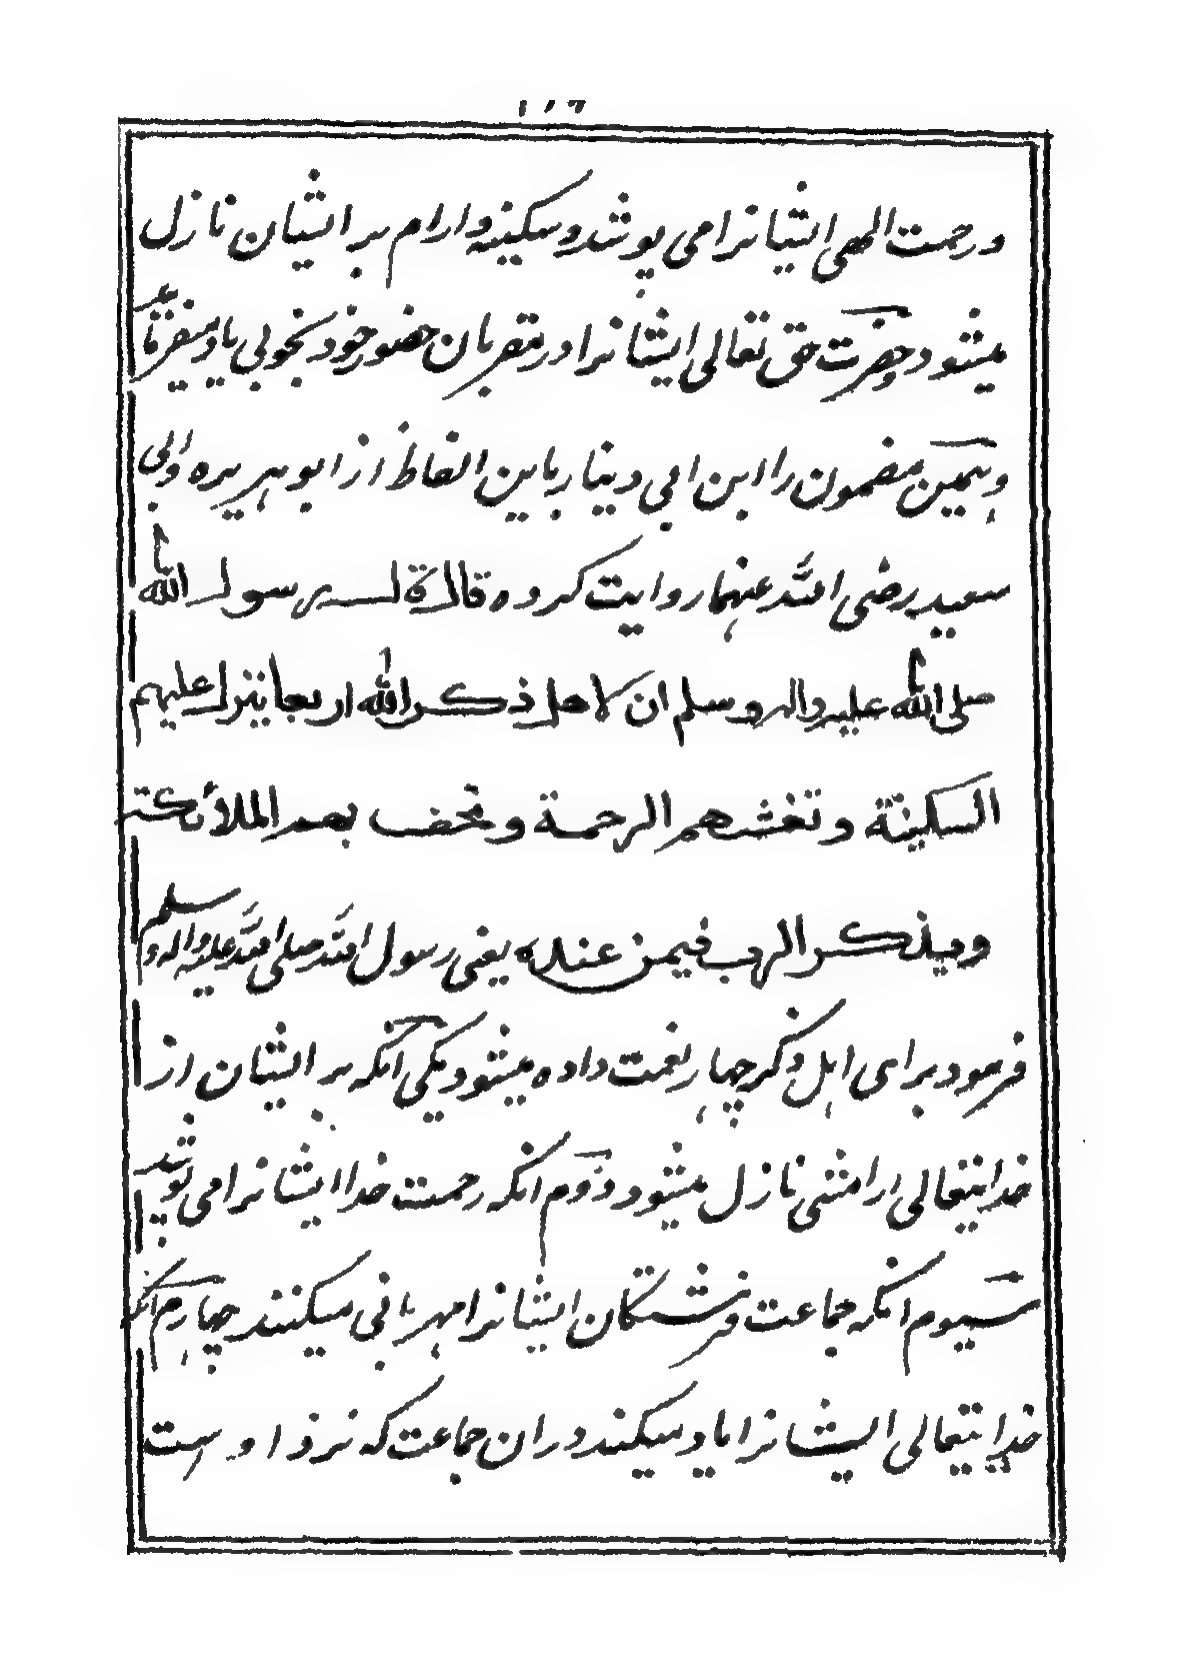 ورحمت الهی ایشانرا می پوشد و سکینه و ارام بر ایشان نازل
میشود و حضرت حق تعالی ایشانرا در مقربان حضور خود بخوبی یاد میفرماید
و همین مضمون را ابن ابی دینار باین الفاظ از ابو هریره و ابی
سعید رضی الله عنهما روایت کرده قال قال رسول الله
صلی الله علیه واله وسلم ان لاهل ذکر الله اربعا ینزل علیهم
السکینة وتغشهم الرحمة وتحف بهم الملائکة
ویذکر الرب فیمن عنده یعنی رسول الله صلی الله علیه واله وسلم
فرمود برای اهل ذکر چهار نعمت داده میشود یکی آنکه بر ایشان از
خدایتعالی ارامشی نازل میشود دوم انکه رحمت خدا ایشانرا می پوشد
سیوم انکه جماعت فرشتگان ایشانرا مهربانی میکنند چهارم آنکه
خدایتعالی ایشانرا یاد میکند در ان جماعت که نزد اوست